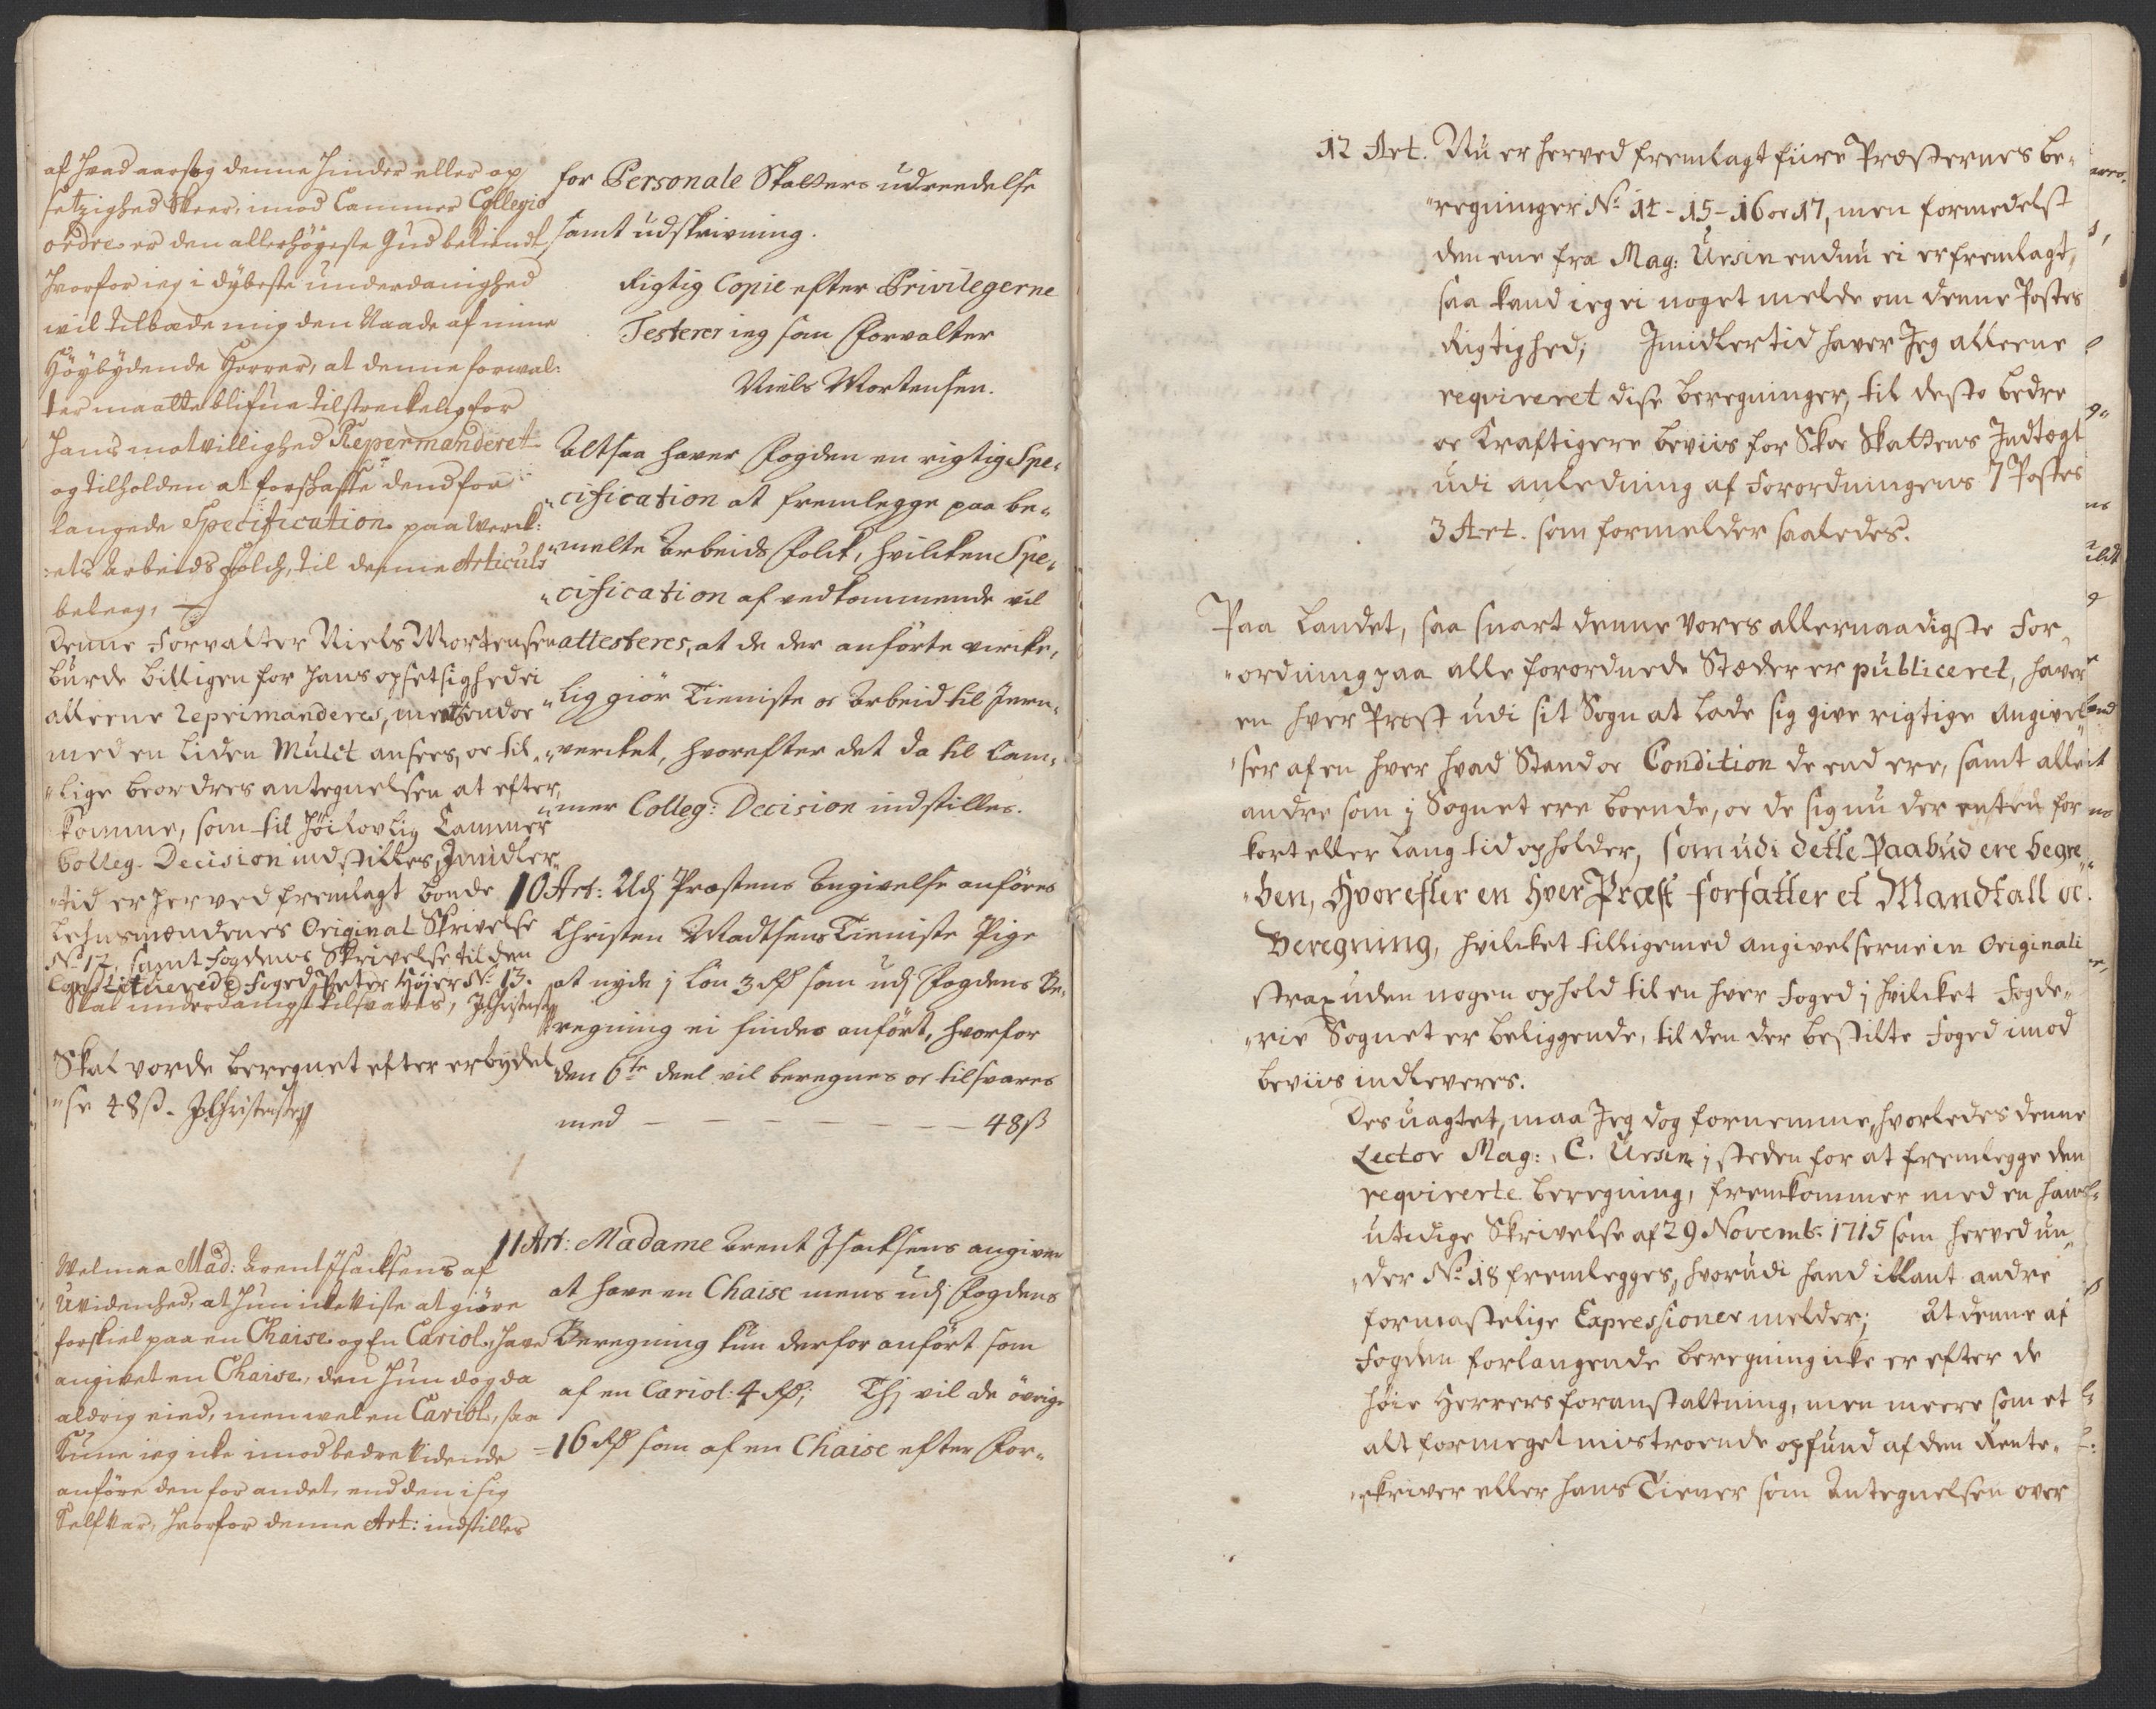 af hvad aarsag denne hinder eller op
setzighed skeer, imod Cammer Collegio
ordre er den allerhøyeste Gud bekiendt,
hvorfor ieg i dybeste underdanighed
vil tilbede mig den Naade af mine
Høybydende Herrer, at denne forval:
ter maatte blifue tilstreckelig for
hans motvillighed Repermanderet
og tilholden at forskaffe dend for
langede Specification paa Werck:
:ets Arbeids folch, til denne Articuls
belaeg,
Denne Forvalter Niels Mortensen
burde billigen for hans opsetsighed ei
alleene reprimanderes, mens endoc
med en liden Mulct ansees, oc til
"lige beordres antegnelsen at efter,
komme, som til Høilovlig Cammer
Colleg. Decision indstilles, Imidler,
"tid er herved fremlagt bonde
Lehnsmændenes Original Skrivelse
No 12, samt Fogdens Skrivelse til den
Constituerede Foged Peter Höjer No 13.
Skal underdanigst tilsvares,
Skal vorde beregnet efter erbydel
"se 48 ß.
Velmaa Mad: Arent Jsachsens af
Uvidenhed, at hun icke viste at giøre
forskiel paa en Chaise og En Cariol, have
angivet en Chaise, den hun dog da
aldrig eied, men vel en Cariol, saa
kunne ieg icke imod bedre vidende
anføre den for andet, end den i sig
Self var, hvorfor denne Art: indstilles
for Personale Skatters udreedelse
samt udskrivning.
Rigtig Copie efter Privilegerne
Testerer ieg som Forvalter
Niels Mortensen.
Altsaa haver Fogden en rigtig Spe,
"cification at fremlegge paa be,
"melte Arbeids Folck, hvilcken Spe,
"cification af vedkommende vil
attesteres, at de der anførte vircke,
"lig giør Tieniste oc Arbeid til Jern,
"vercket, hvorefter det da til Cam,
"mer Colleg: Decision indstilles.
10 Art: Udj Præstens Angivelse anføres
Christen Madtsens Tieniste Pige
at nyde j løn 3 Rd som udj Fogdens Be,
"regning ei findes anført, hvorfor
den 6te deel vil beregnes oc tilsvares
med — — — — — — — 48 ß
11 Art: Madame Arent Jsachsens angiver
at have en Chaise mens udj Fogdens
Beregning kun derfor anført som
af en Cariol: 4 Rd; Thj vil de øvrige
=16 Rd som af en Chaise efter For,,
12 Art. Nu er herved fremlagt fiire Præsternes be,
"regninger No 14 - 15 - 16 oc 17, men formedelst
den ene fra Mag: Ursin endnu ei er fremlagt,
saa kand ieg ei noget melde om denne Postes
Rigtighed; Imidlertid haver Jeg alleene
reqvireret disse beregninger, til desto bedre
oc kraftigere beviis for Skoe Skattens Indtegt
udi anledning af Forordningens 7 Postes
3 Art. som formelder saaledes.
Paa Landet, saa snart denne vores allernaadigste For,
"ordning paa alle forordnede Stæder er publiceret, haver
en hver Præst udi sit Sogn at lade sig give rigtige angivel
"ser af en hver hvad Stand oc Condition de end ere, samt alle
andre som j Sognet ere boende, oc de sig nu der enten for
kort eller lang tid opholder, som udi dette Paabud ere begre,,
"ben, Hvorefter en hver Præst forfatter et Mandtall oc
Beregning, hvilcket tilligemed angivelserne in Originali
strax uden nogen ophold til en hver Foged j hvilcket Fogde,
"rie Sognet er beliggende, til den der bestilte Foged imod
beviis indleveres.
Des uagtet, maa Jeg dog fornemme, hvorledes denne
Lector Mag: C. Ursin j steden for at fremlegge den
reqvirerte beregning, fremkommer med en hans
utidige Skrivelse af 29 Novemb: 1715 som herved un,,
"der No 18 fremlegges, hvorudi hand iblant andre
formastelige Expressioner melder; At denne af
Fogden forlangende beregning icke er efter de
høie Herrers foranstaltning, men meere som et
alt formeget mistroende opfund af den Rente,
"skriver eller hans Tiener som Antegnelsen over